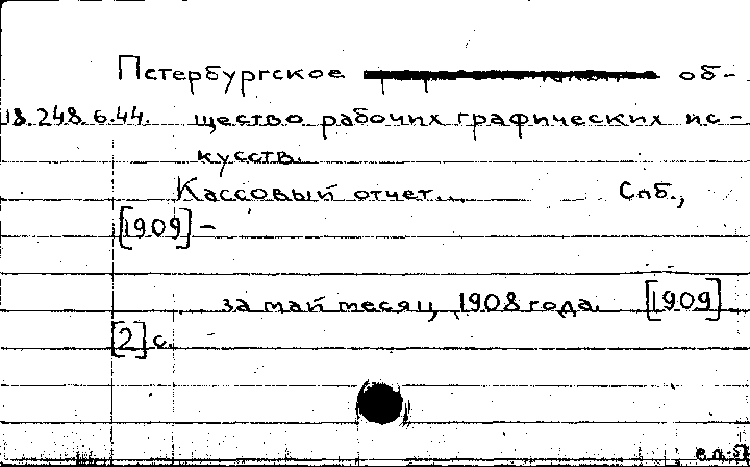 Петербургское об-
18.248.6.44. щество рабочих графических ис-
кусств.
Кассовый отчет... Спб.,
[1909] –
за май месяц 1908 года. [1909]
[2] с.